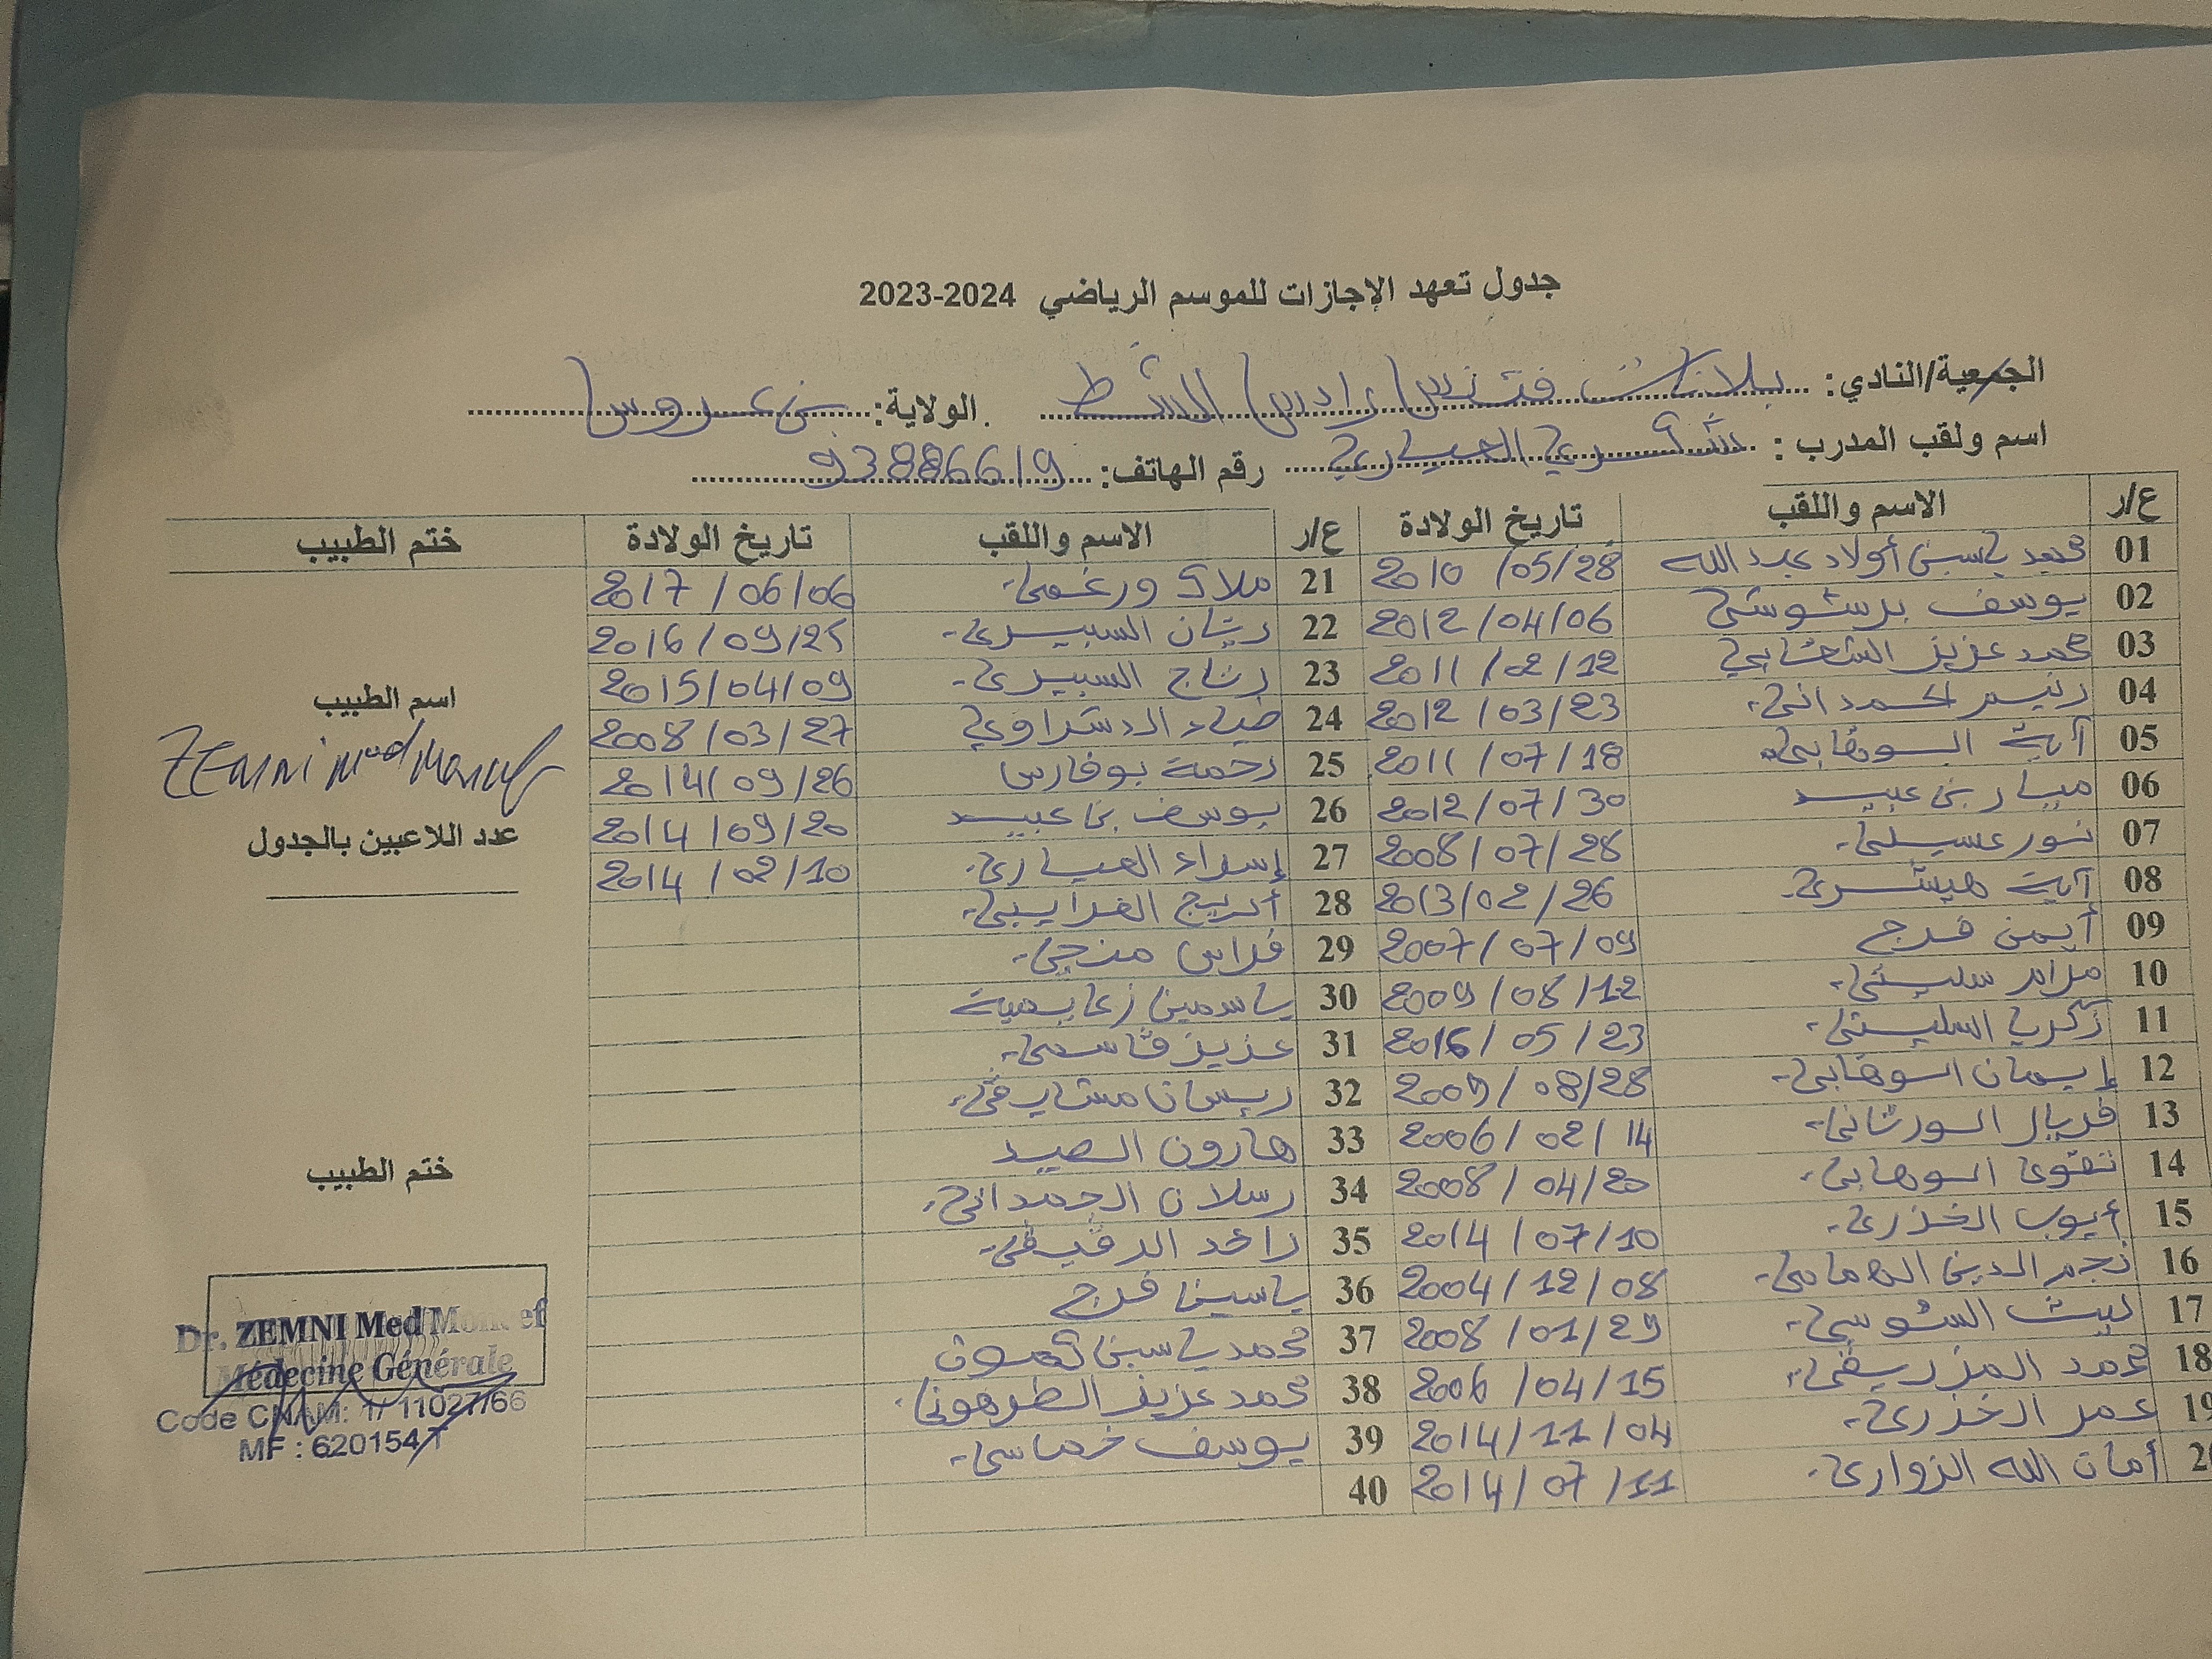 جدول تعهد الإجازات للموسم الرياضي 2023-2024
الجمعية/النادي: بلانات فتنس رادس الشط الولاية: بن عروس
اسم ولقب المدرب : شكري العياري رقم الهاتف: 93886619
ع/ر الاسم واللقب تاريخ الولادة ع/ر الاسم واللقب تاريخ الولادة ختم الطبيب
01 محمد ياسين أولاد عبد الله 2010/05/28 21 ملاك ورغمي 2017/06/06
02 يوسف برشوشي 2012/04/06 22 ريان السبيري 2016/09/25
03 محمد عزيز 2011/02/12 23 رتاج السبيري 2015/04/09
04 رنيم الحمداني 2012/03/23 24 ضياء الدشراوي 2008/03/27
05 آية الوهابي 2011/07/18 25 رحمة بوفارس 2014/09/26
06 ميار بن عبيد 2012/07/30 26 يوسف بن عبيد 2014/09/20
07 نور عسيلي 2008/07/28 27 إسراء العياري 2014/02/10
08 آية هيشري 2013/02/26 28 أريج الغرايبي
09 أيمن فرج 2007/07/09 29 فراس منجي
10 مرام سليتي 2009/08/12 30 ياسمين زعايمية
11 زكريا السليتي 2016/05/23 31 عزيز قاسمي
12 إيمان الوهابي 2009/08/28 32 ريان مشارقي
13 فريال الورتاني 2006/02/14 33 هارون الصيد
14 تقوى الوهابي 2008/04/20 34 رسلان الحمداني
15 أيوب الخذري 2014/07/10 35 رائد الرقيقي
16 نجم الدين الهمامي 2004/12/08 36 ياسين فرج
17 ليث السوسي 2008/01/29 37 محمد ياسين كمون
18 محمد المزريقي 2006/04/15 38 محمد عزيز الطرهوني
19 عمر الخذري 2014/11/04 39 يوسف خماسي
20 أمان الله الزواري 2014/07/11 40
اسم الطبيب
ZEMNI Med Moncef
عدد اللاعبين بالجدول
ختم الطبيب
Dr. ZEMNI Med Moncef
Médecine Générale
Code CNAM: 1/ 11027/66
MF : 620154/T